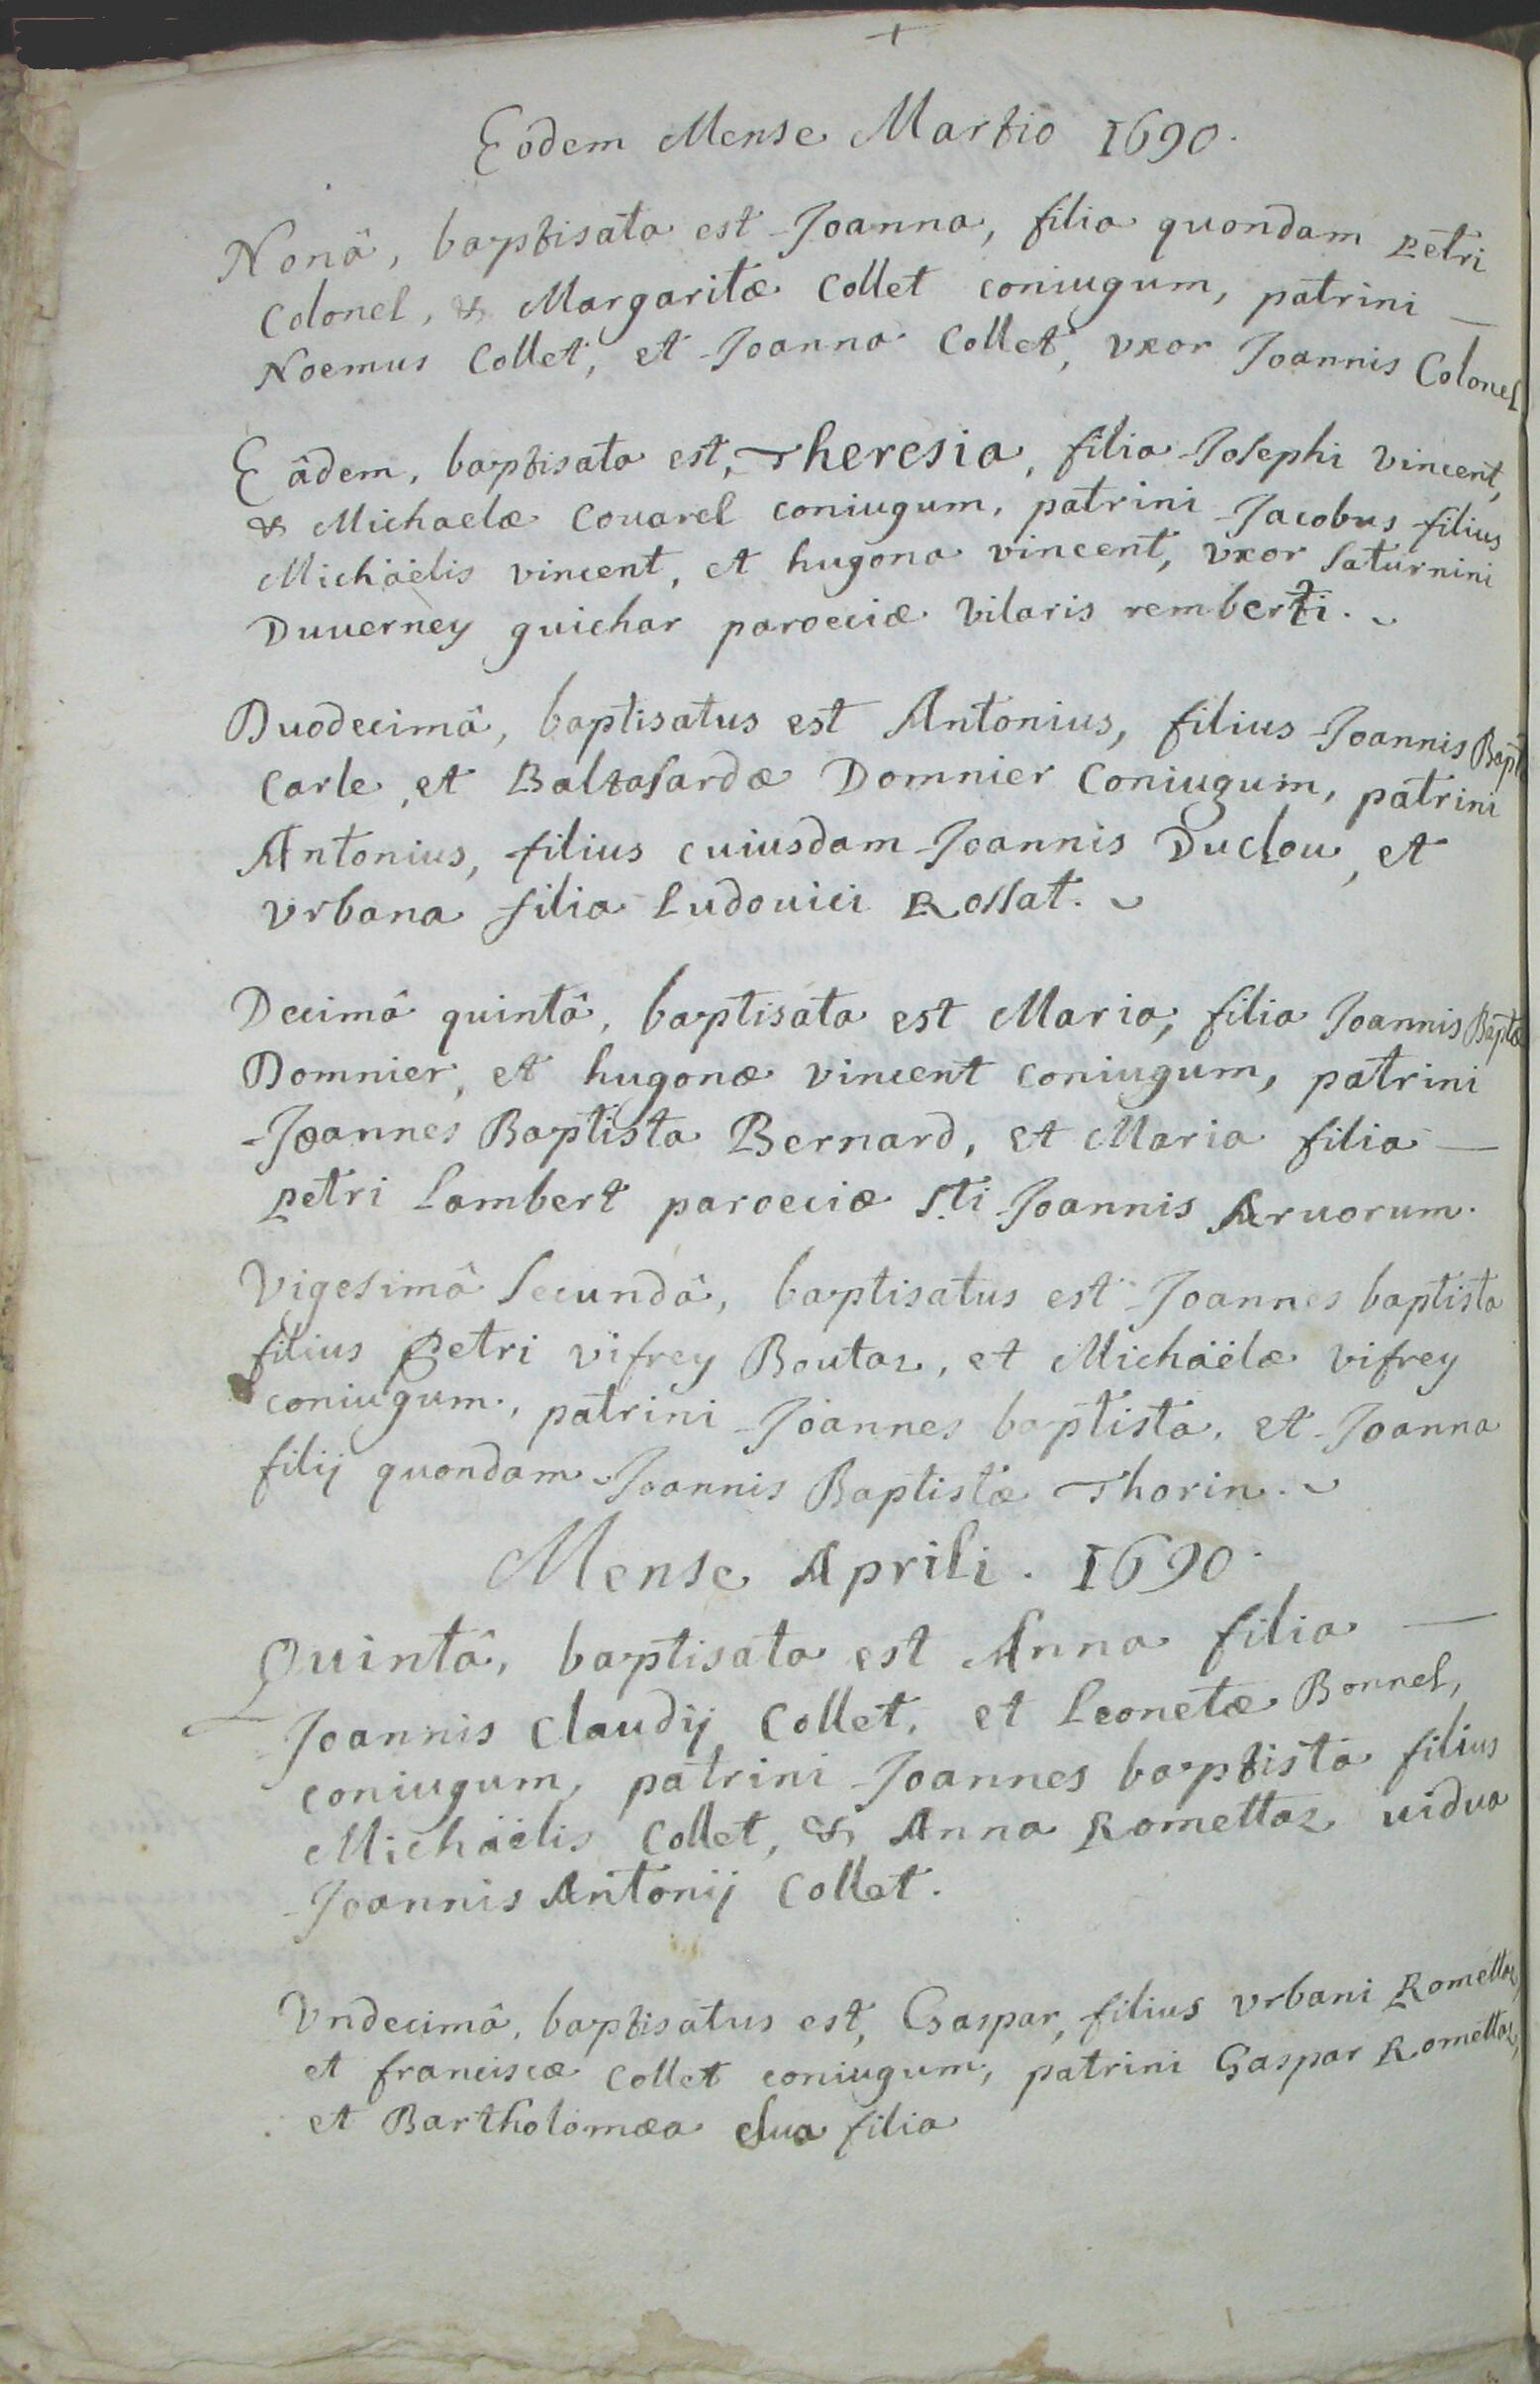 +
Eôdem Mense Martio 1690.
Nonâ, baptisata est Joanna, filia quondam Petri
Colonel, & Margaritæ Collet coniugum, patrini —
Noemus Collet, et Joanna Collet, vxor Joannis Colonel
Eâdem, baptisata est, Theresia, filia Josephi Vincent,
& Michaelæ Couarel coniugum, patrini Jacobus filius
Michäelis vincent, et hugona vincent, vxor Saturnini
Duuerney guichar paroeciæ Vilaris remberti.
Duodecimâ, baptisatus est Antonius, filius Joannis Bapt
Carle, et Baltasardæ Domnier Coniugum, patrini
Antonius, filius cuiusdam Joannis Duclou, et
vrbana filia Ludouici Rossat.
Decimâ quintâ, baptisata est Maria, filia Joannis Baptæ
Domnier, et hugonæ vincent coniugum, patrini
Joannes Baptista Bernard, et Maria filia —
Petri Lambert paroeciæ Sti Joannis Aruorum.
Vigesimâ Secundâ, baptisatus est Joannes baptista
filius Petri vifrey Boutaz, et Michäelæ vifrey
coniugum, patrini Joannes baptista, et Joanna
filij quondam Joannis Baptistæ Thorin.
Mense Aprili. 1690.
Quintâ, baptisata est Anna filia —
Joannis Claudij Collet, et Leonetæ Bonnel,
coniugum, patrini Joannes baptista filius
Michäelis Collet, & Anna Romettaz uidua
Joannis Antonij Collet.
Vndecimâ, baptisatus est, Gaspar, filius vrbani Romettaz,
et franciscæ Collet coniugum, patrini Gaspar Romettaz,
et Bartholomæa sua filia